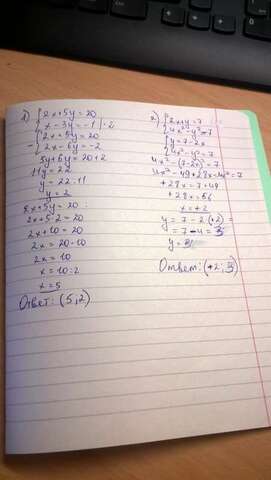 1) { 2x+5y=20
x-3y=-1 |·2
- { 2x+5y=20
2x-6y=-2
5y+6y=20+2
11y=22
y=22:11
y=2
2x+5y=20
2x+5·2=20
2x+10=20
2x=20-10
2x=10
x=10:2
x=5
Ответ: (5,2)
2) { 2x+y=7
4x²-y²=7
{ y=7-2x
4x²-y²=7
4x²-(7-2x)²=7
4x²-49+28x-4x²=7
+28x=7+49
+28x=56
x=+2
y=7-2·(+2)=
=7-4=3
y=3
Ответ: (+2;3)